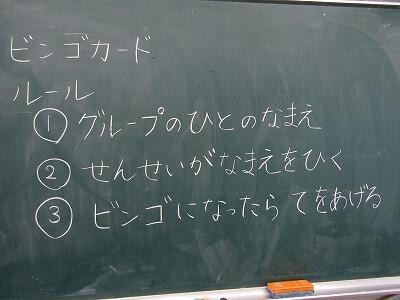 ビンゴカード
ルール
①グループのひとのなまえ
②せんせいがなまえをひく
③ビンゴになったら てをあげる